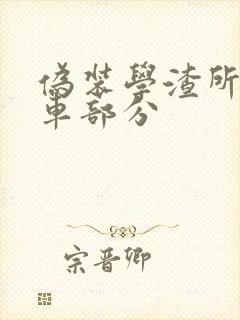 偽裝學渣所
車部分
宗晋卿